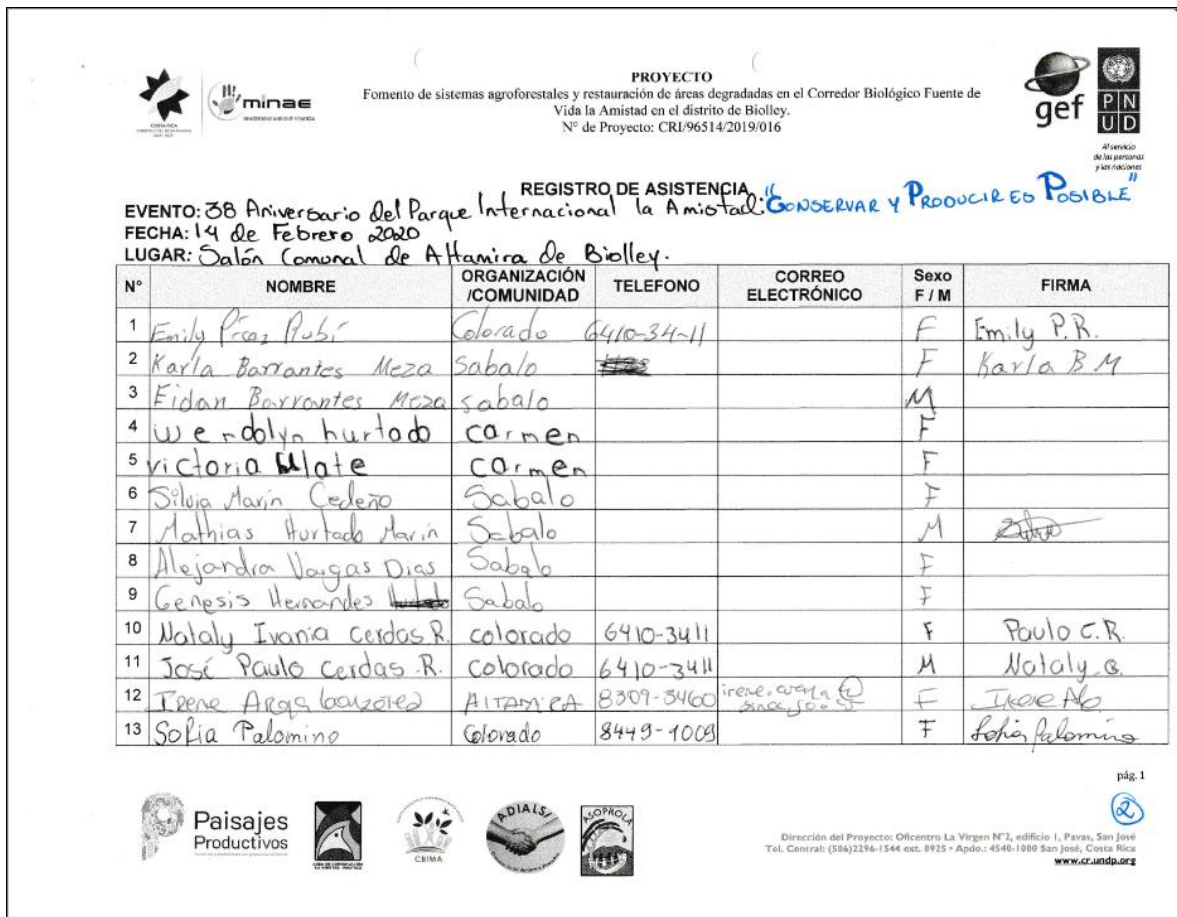 COSTA RICA
minae
PROYECTO
Fomento de sistemas agroforestales y restauración de áreas degradadas en el Corredor Biológico Fuente de
Vida la Amistad en el distrito de Biolley.
N° de Proyecto: CRI/96514/2019/016
gef
PN
UD
Al servicio
de las personas
y las naciones
REGISTRO DE ASISTENCIA
EVENTO: 38 Aniversario del Parque Internacional la Amistad: "CONSERVAR Y PRODUCIR ES POSIBLE"
FECHA: 14 de Febrero 2020
LUGAR: Salón Comunal de Altamira de Biolley.
N° NOMBRE ORGANIZACIÓN /COMUNIDAD TELEFONO CORREO ELECTRÓNICO Sexo F / M FIRMA
1 Emily Rubí Colorado 6410-34-11 F Emily P.R.
2 Karla Barrantes Meza Sabalo F Karla B M
3 Eidan Barrantes Meza sabalo M
4 wendolyn hurtado carmen F
5 victoria Ulate carmen F
6 Silvia Marín Cedeño Sabalo F
7 Mathias Hurtado Marín Sabalo M
8 Alejandra Vargas Dias Sabalo F
9 Genesis Hernandes Sabalo F
10 Nataly Ivania Cerdas R. colorado 6410-3411 F Paulo C.R.
11 José Paulo Cerdas .R. colorado 6410-3411 M Nataly.c.
12 Irene ALTAMIRA 8309-3460 F
13 Sofia Palomino Colorado 8449-1009 F Sofia Palomino
pág. 1
2
Paisajes
Productivos
CEIMA
ADIALS
ASOPROLA
Dirección del Proyecto: Oficentro La Virgen N°2, edificio 1, Pavas, San José
Tel. Central: (506)2296-1544 ext. 8925 • Apdo.: 4540-1000 San José, Costa Rica
www.cr.undp.org